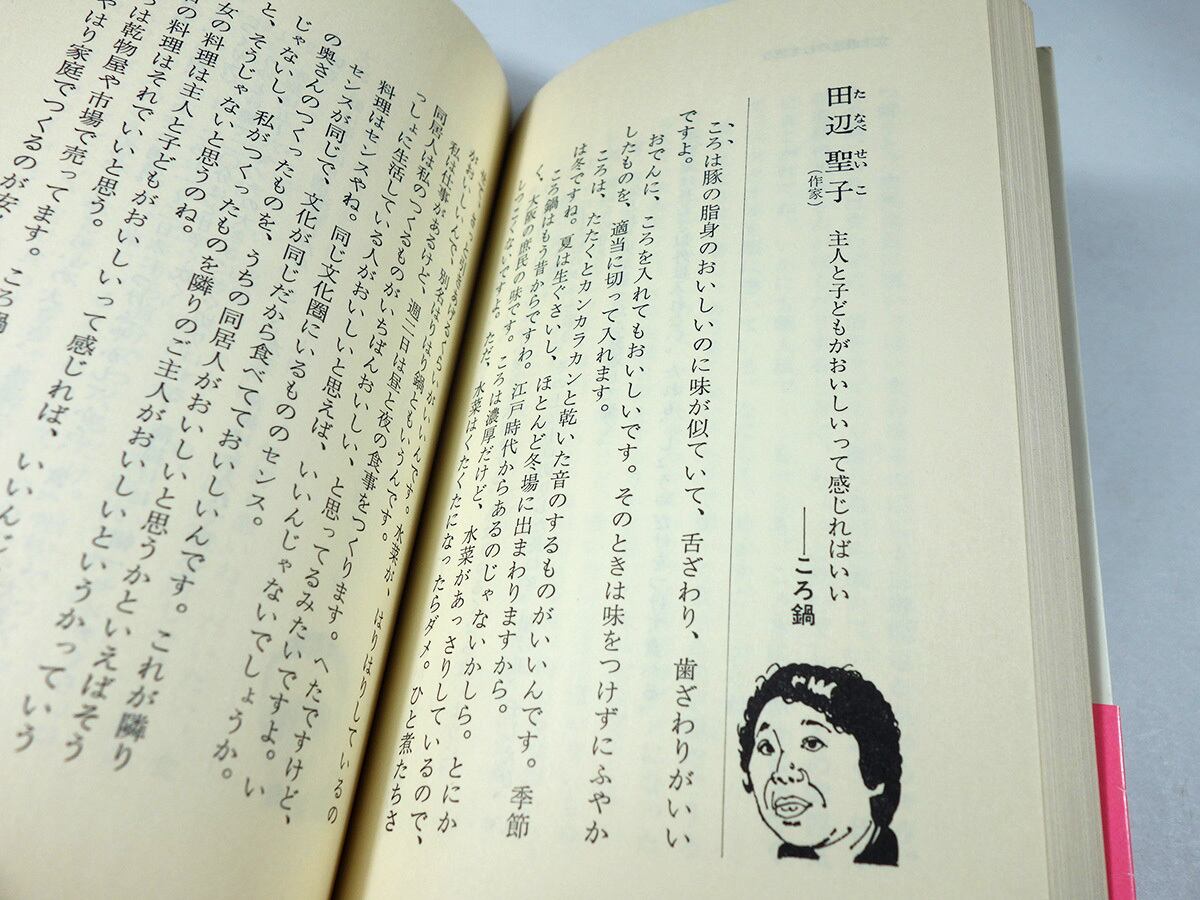 田辺聖子(作家) 主人と子どもがおいしいって感じればいい
たなべせいこ
——ころ鍋
ころは豚の脂身のおいしいのに味が似ていて、舌ざわり、歯ざわりがいい
ですよ。
おでんに、ころを入れてもおいしいです。そのときは味をつけずにふやか
したものを、適当に切って入れます。
ころは、たたくとカンカラカンと乾いた音のするものがいいんです。季節
は冬ですね。夏は生ぐさいし、ほとんど冬場に出まわりますから。
ころ鍋はもう昔からですわ。江戸時代からあるのじゃないかしら。とにか
く、大阪の庶民の味です。ころは濃厚だけど、水菜があっさりしているので、
しつこくないですよ。ただ、水菜はくたくたになったらダメ。ひと煮たちさ
引きあげるくらいがいいんです。水菜が、はりはりしているの
がおいしいんで、別名はりはり鍋ともいうんです。
私は仕事があるけど、週二日は昼と夜の食事をつくります。へたですけど、
同居人は私のつくるものがいちばんおいしい、と思ってるみたいですよ。い
っしょに生活している人がおいしいと思えば、いいんじゃないでしょうか。
料理はセンスやね。同じ文化圏にいるもののセンス。
センスが同じで、文化が同じだから食べてておいしいんです。これが隣り
の奥さんのつくったものを、うちの同居人がおいしいと思うかといえばそう
じゃないし、私がつくったものを隣りのご主人がおいしいというかっていう
と、そうじゃないと思うのね。
女の料理は主人と子どもがおいしいって感じれば、いいんじ
の料理はそれでいいと思う。
ろは乾物屋や市場で売ってます。ころ鍋
やはり家庭でつくるのが女